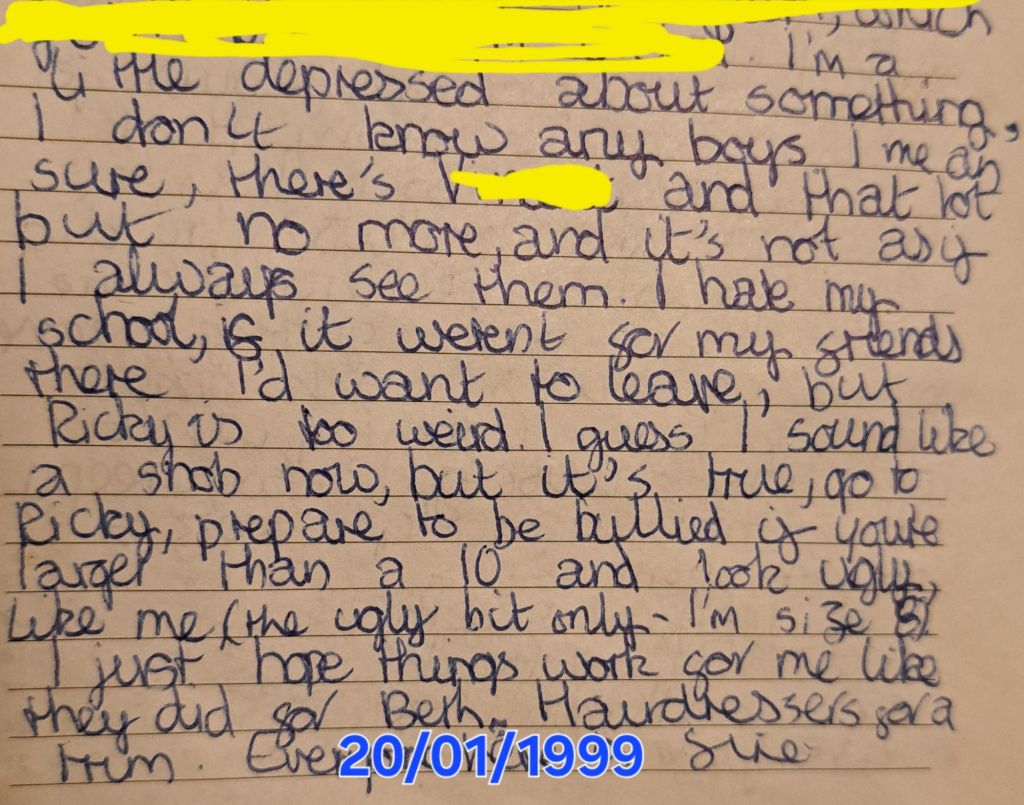 which
I'm a
little depressed about something,
I don't know any boys I mean
sure, there's and that lot
but no more, and it's not as if
I always see them. I hate my
school, if it werent for my friends
there I'd want to leave, but
Ricky is too weird. I guess I sound like
a snob now, but it's true, go to
Ricky, prepare to be bullied if you're
larger than a 10 and look ugly,
like me (the ugly bit only - I'm size 8)
I just hope things work for me like
they did for Beth. Hairdressers for a
trim.
20/01/1999